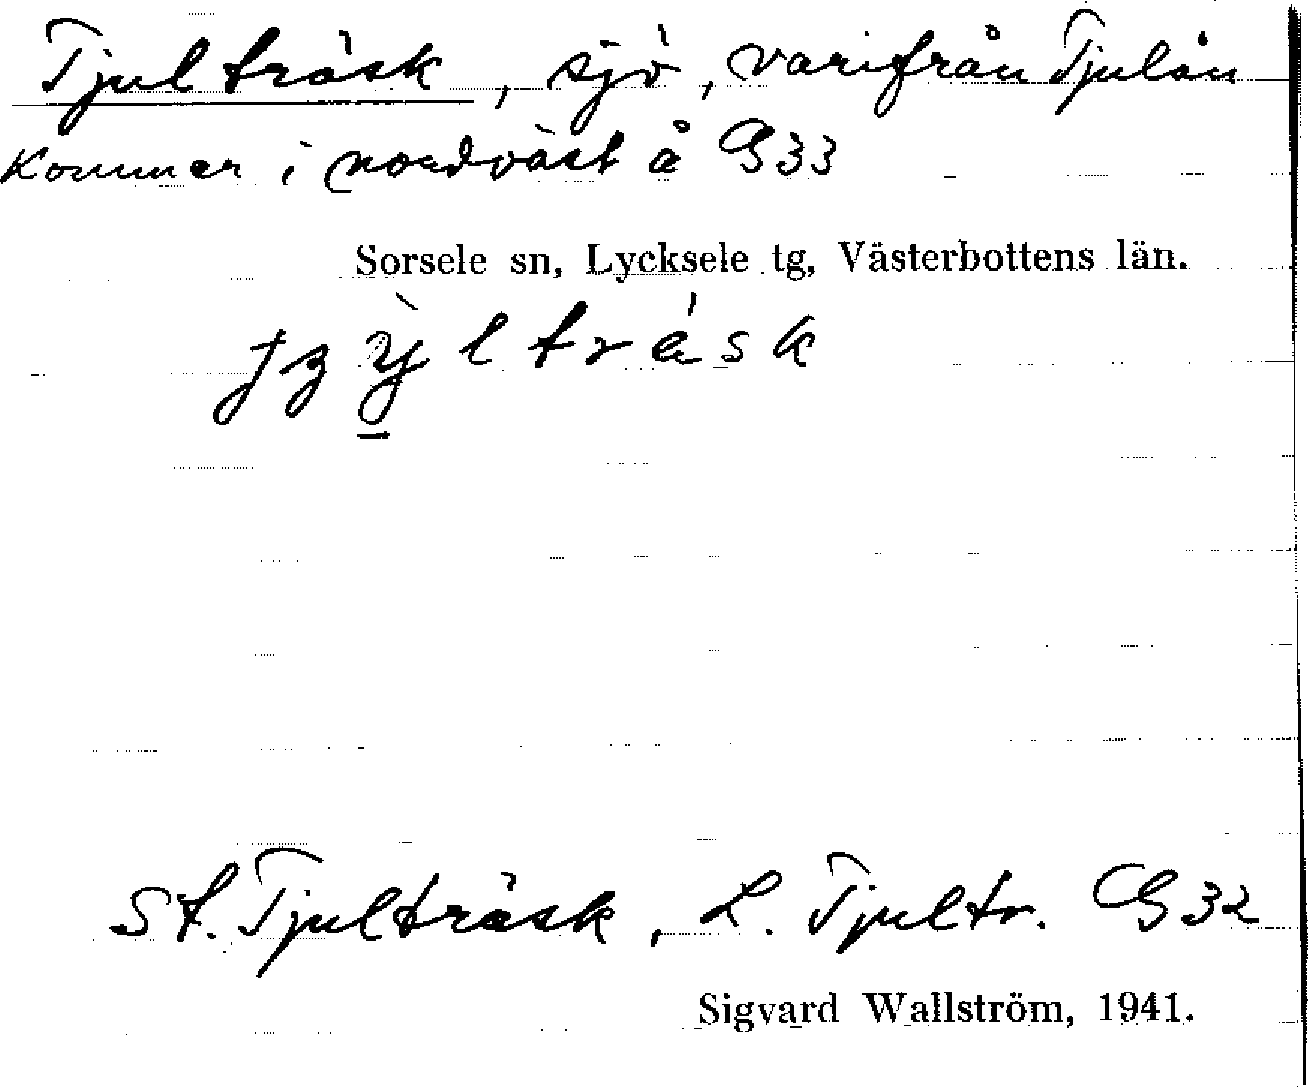 Tjulträsk, sjö, varifrån Tjulån
kommer i nordväst å G33
Sorsele sn, Lycksele tg, Västerbottens län.
St. Tjulträsk, L. Tjultr. G32
Sigvard Wallström, 1941.